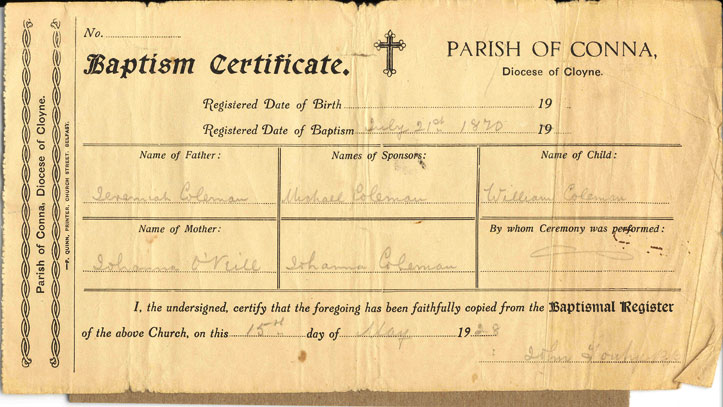 No.
Baptism Certificate.
PARISH OF CONNA,
Diocese of Cloyne.
Registered Date of Birth 19
Registered Date of Baptism July 21st 1870 19
Name of Father: Names of Sponsors: Name of Child:
Jeremiah Coleman Michael Coleman William Coleman
Name of Mother: By whom Ceremony was performed:
Johanna O'Neill Johanna Coleman
I, the undersigned, certify that the foregoing has been faithfully copied from the Baptismal Register
of the above Church, on this 15th day of May 1928
John
Parish of Conna, Diocese of Cloyne.
F. QUINN, PRINTER, CHURCH STREET, BELFAST.